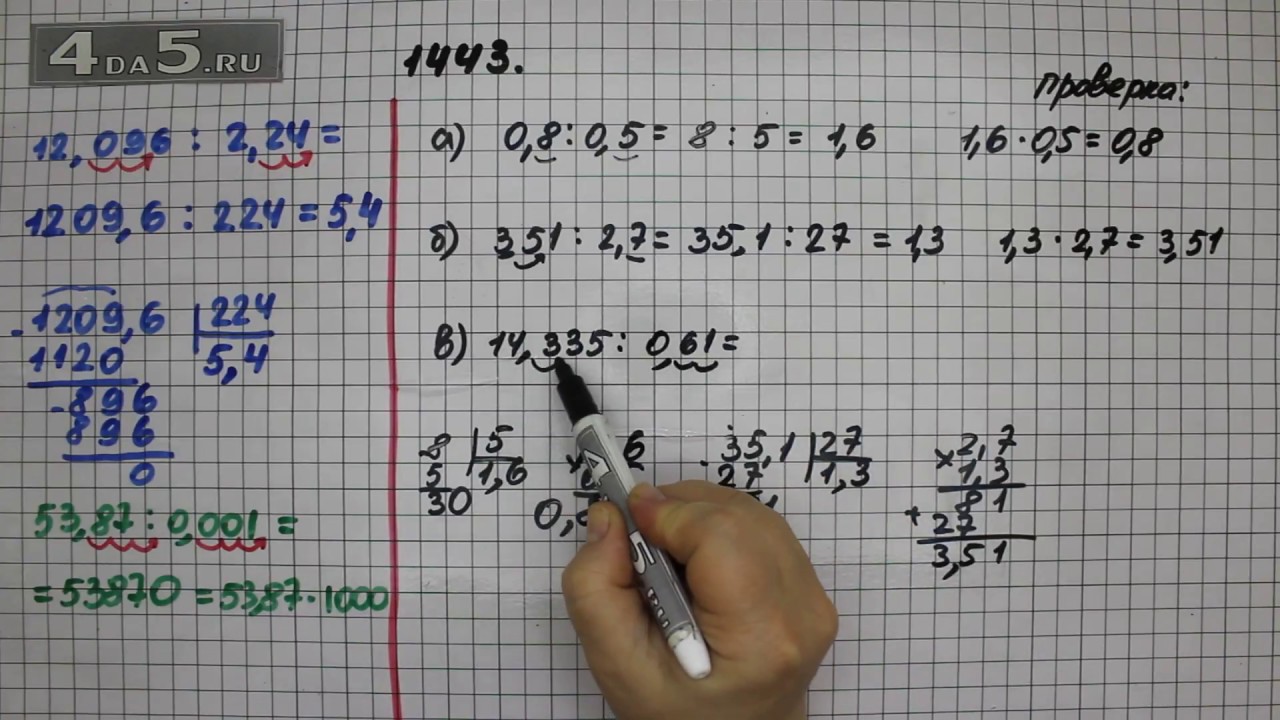 4DA5.RU
1443.
проверка:
12,096 : 2,24 =
1209,6 : 224 = 5,4
- 1209,6 | 224
1120 5,4
- 896
896
0
53,87 : 0,001 =
= 53870 = 53,87 · 1000
а) 0,8 : 0,5 = 8 : 5 = 1,6 1,6 · 0,5 = 0,8
б) 3,51 : 2,7 = 35,1 : 27 = 1,3 1,3 · 2,7 = 3,51
в) 14,335 : 0,61 =
- 8 | 5
5 1,6
30
6
×
0,
- 35,1 | 27
27 1,3
× 2,7
1,3
81
+ 27
3,51